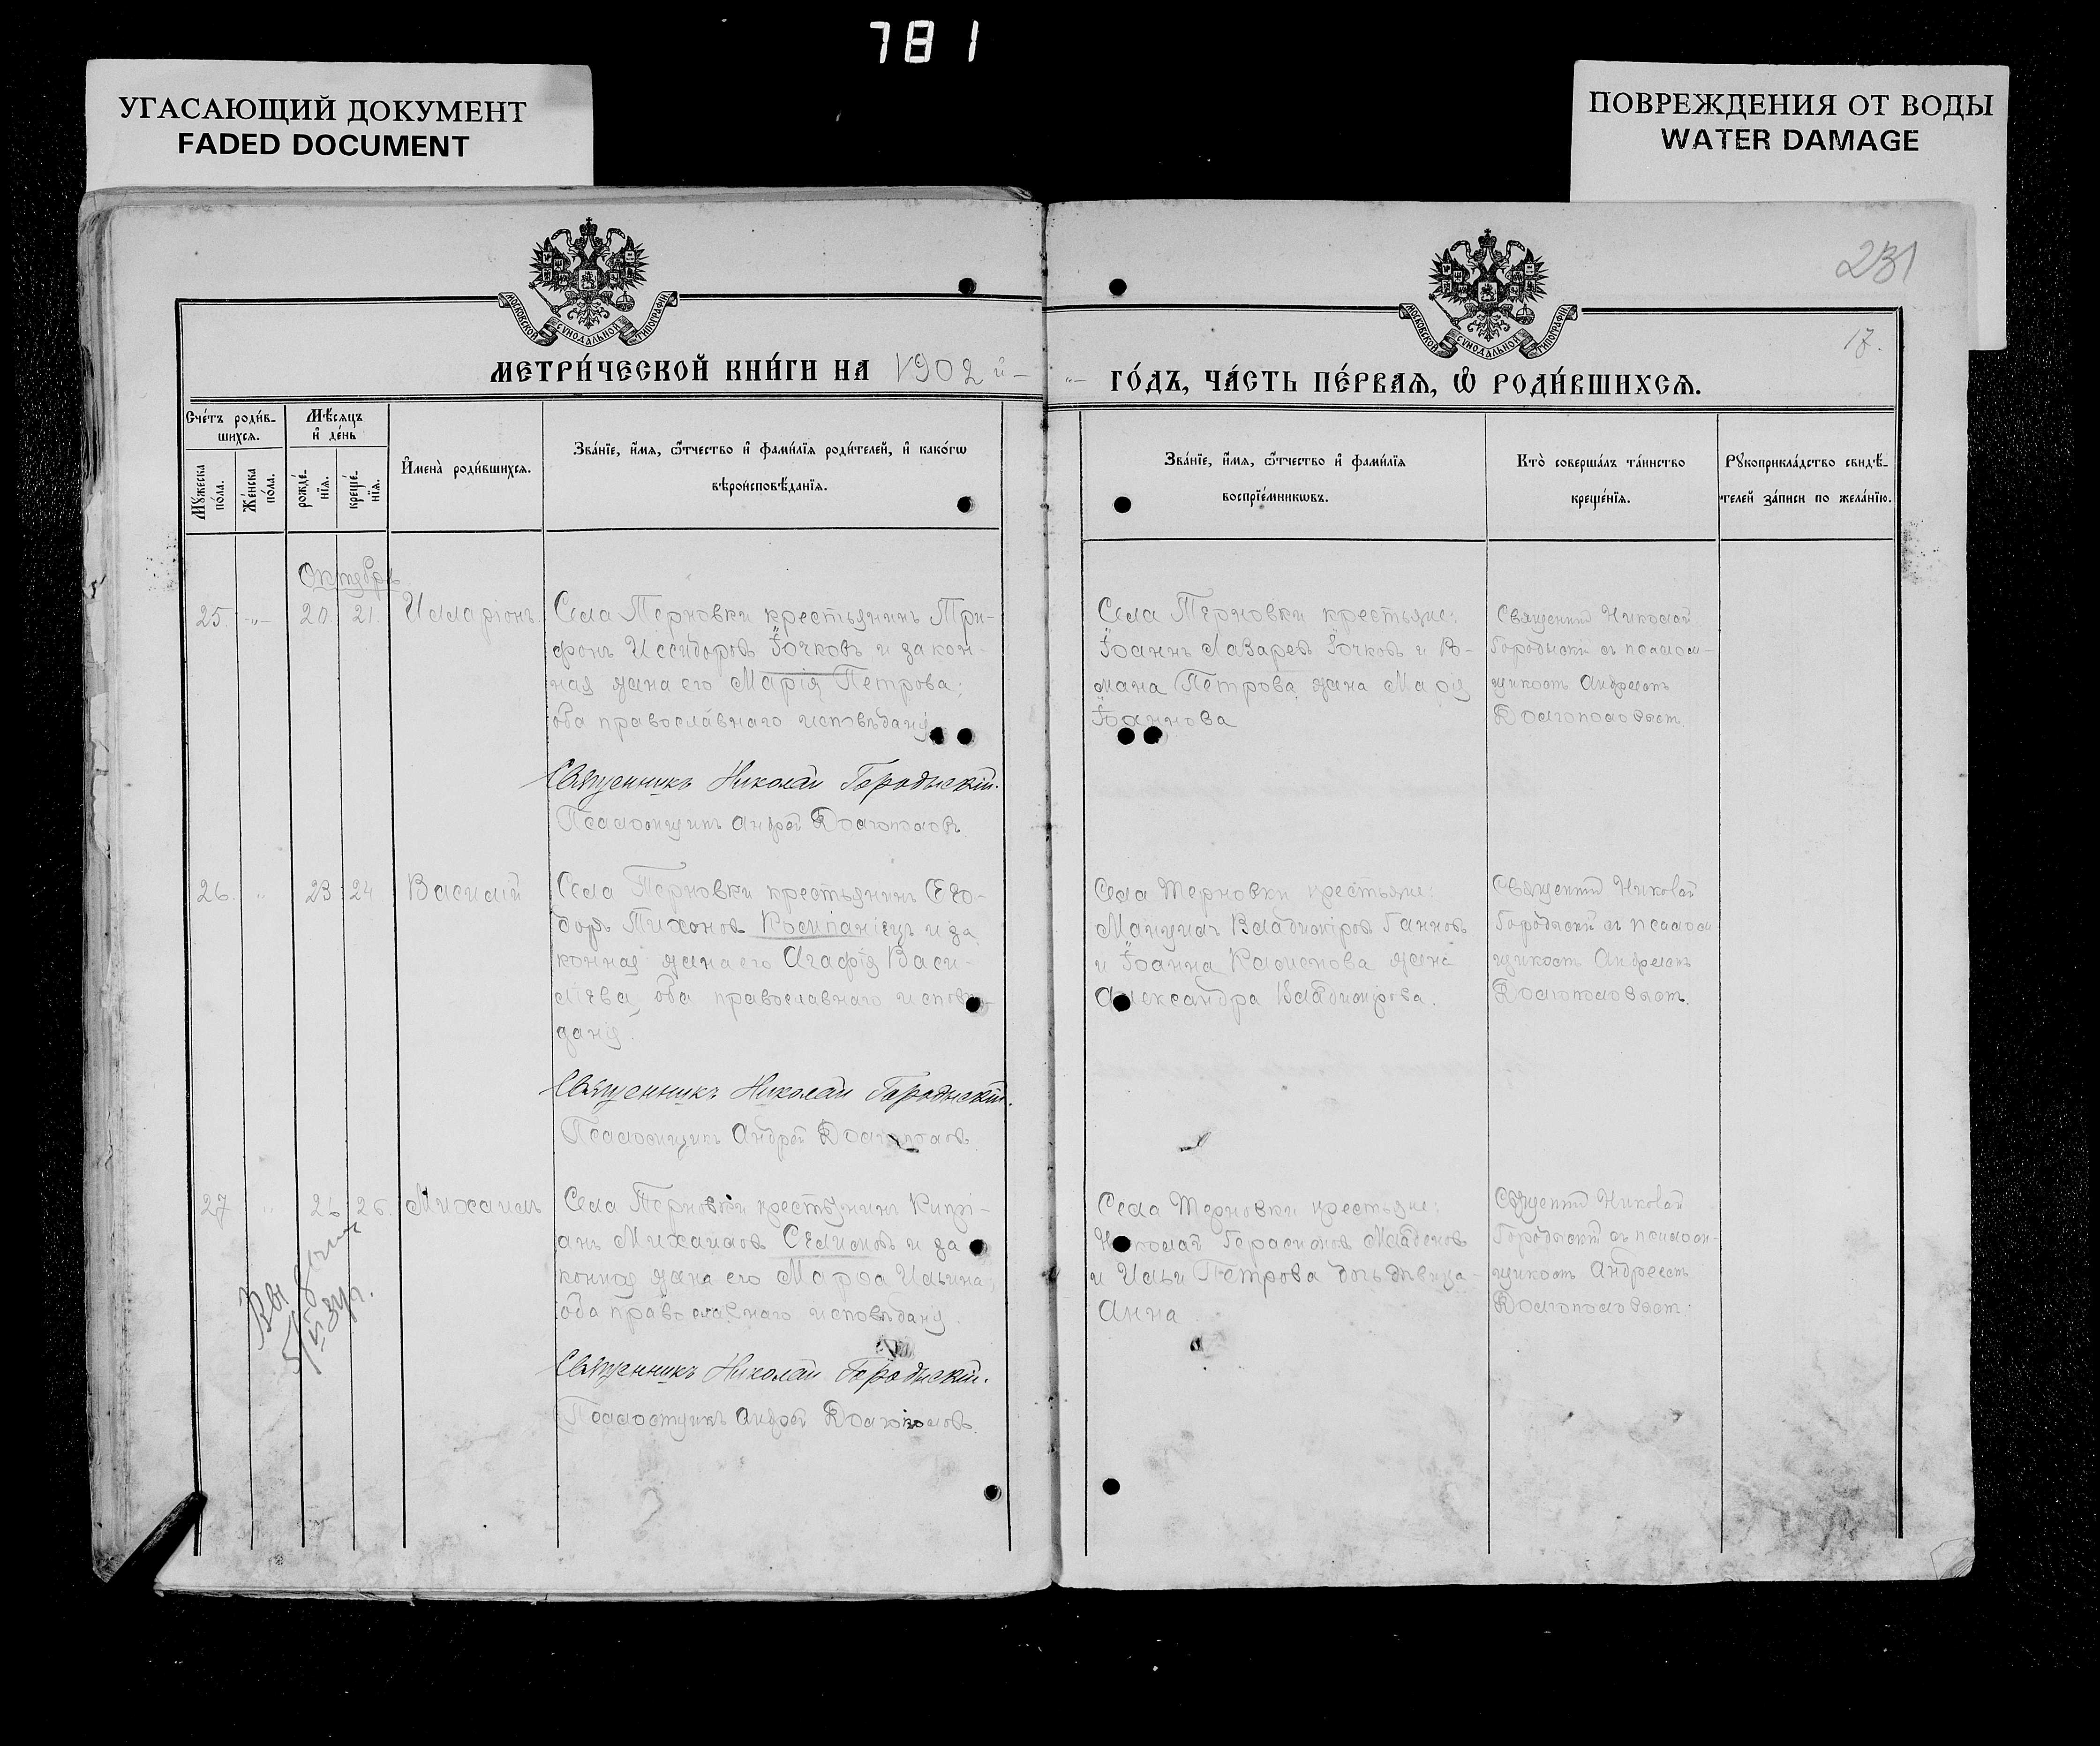 781
УГАСАЮЩИЙ ДОКУМЕНТ
FADED DOCUMENT
ПОВРЕЖДЕНИЯ ОТ ВОДЫ
WATER DAMAGE
231
17.
МОСКОВСКОЙ СѴНОДАЛЬНОЙ ТИПОГРАФІИ
МОСКОВСКОЙ СѴНОДАЛЬНОЙ ТИПОГРАФІИ
МЕТРИ́ЧЕСКОЙ КНИ́ГИ НА 1902 й
ГО́ДЪ, ЧА́СТЬ ПЕ́РВАѦ, Ѡ҆ РОДИ́ВШИХСѦ.
Сче́тъ роди́в-
шихсѧ.
Мꙋжеска по́ла.
Же́нска по́ла.
Мѣ́сѧцъ
и҆ де́нь
рожде́-
нїѧ.
креще́-
нїѧ.
И҆мена̀ роди́вшихсѧ.
Зва́нїе, и҆́мѧ, ѻ҆́тчество и҆ фами́лїѧ роди́телей, и҆ како́гѡ
вѣроисповѣ́данїѧ.
Зва́нїе, и҆́мѧ, ѻ҆́тчество и҆ фами́лїѧ
воспрїе́мникѡвъ.
Кто̀ соверша́лъ та́инство
креще́нїѧ.
Рꙋкоприкла́дство свидѣ́-
телей за́писи по жела́нїю.
Октябрь
25. 20. 21. Илларіонъ.
Села Терновки крестьянинъ Три-
фонъ Исидоровъ Іочковъ и закон-
ная жена его Марія Петрова;
оба православнаго исповѣданія
Священникъ Николай Городыскій.
Псаломщикъ Андрей Долгополовъ.
Села Терновки крестьяне:
Іоаннъ Лазаревъ Іочковъ и Ро-
мана Петрова жена Марія
Іоаннова
Священникъ Николай
Городыскій съ псалом-
щикомъ Андреемъ
Долгополовымъ.
26. 23 24 Василій
Села Терновки крестьянинъ Ѳео-
доръ Тихоновъ и за
конная жена его Агафія Васи-
ліева, оба православнаго исповѣ-
данія.
Священникъ Николай Городыскій.
Псаломщикъ Андрей Долгополовъ.
Села Терновки крестьяне:
Владиміровъ
и Іоанна жена
Александра Владимірова.
Священникъ Николай
Городыскій съ псалом
щикомъ Андреемъ
Долгополовымъ.
27 26 26. Михаилъ
Села Терновки крестьянинъ Кипрі-
анъ Михаиловъ и за
конная жена его Марѳа Ильина,
оба православнаго исповѣданія.
Священникъ Николай Городыскій.
Псаломщикъ Андрей Долгополовъ.
Села Терновки крестьяне:
Николай Герасимовъ Младеновъ
и Ильи Петрова дочь дѣвица
Анна
Священникъ Николай
Городыскій съ псалом-
щикомъ Андреемъ
Долгополовымъ.